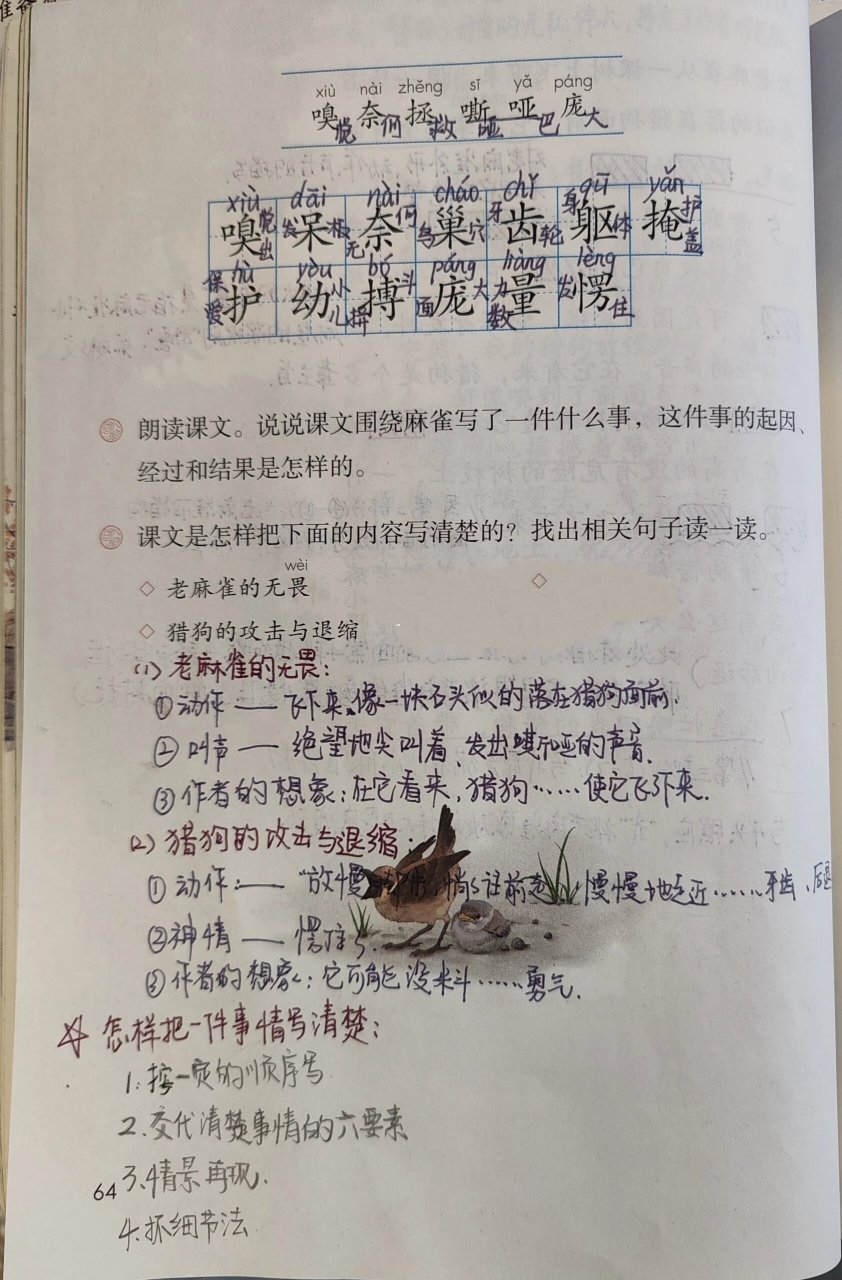 xiù nài zhěng sī yǎ páng
嗅 奈 拯 嘶 哑 庞
觉 何 救 哑 巴 大
xiù dāi nài cháo chǐ qū yǎn
嗅 呆 奈 巢 齿 躯 掩
觉 出 发 板 无 何 鸟 穴 牙 轮 身 体 护 盖
hù yòu bó páng liàng lèng
护 幼 搏 庞 量 愣
保 爱 小 儿 拼 斗 面 大 力 数 发 住
朗读课文。说说课文围绕麻雀写了一件什么事，这件事的起因、
经过和结果是怎样的。
课文是怎样把下面的内容写清楚的？找出相关句子读一读。
wèi
◇ 老麻雀的无畏
◇
◇ 猎狗的攻击与退缩
(1) 老麻雀的无畏：
①动作 —— 飞下来、像一块石头似的落在猎狗面前.
②叫声 —— 绝望地尖叫着、发出嘶哑的声音.
③作者的想象：在它看来，猎狗……使它飞下来.
(2) 猎狗的攻击与退缩：
①动作：—— “放慢脚步，悄悄往前走 慢慢地走近……牙齿、后退
②神情 —— 愣住了.
③作者的想象：它可能没料……勇气.
☆ 怎样把一件事情写清楚：
1.按一定的顺序写
2.交代清楚事情的六要素
3.情景再现.
4.抓细节法
64